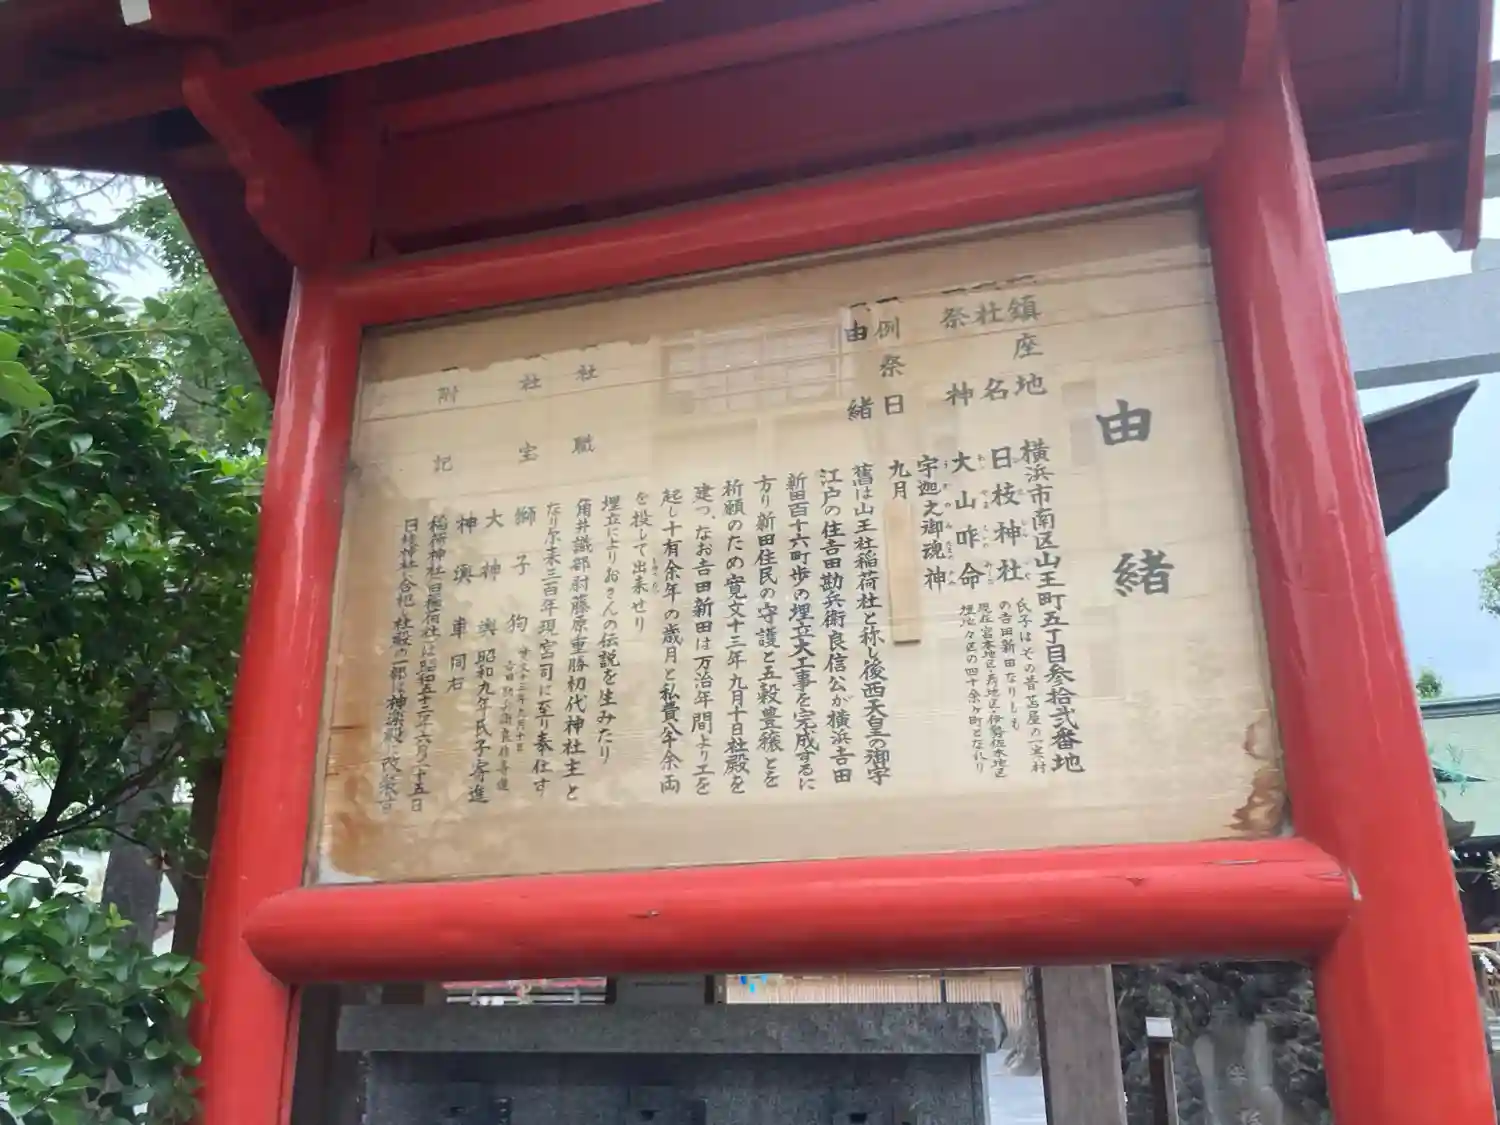 由緒
一鎮座地 横浜市南区山王町五丁目参拾弐番地
一社名 日枝神社
氏子はその昔苫屋の一寒村
の吉田新田なりしも
現在宮本地区・寿地区・伊勢佐木地区
埋地々区の四十余ヶ町となれり
一祭神 大山咋命
宇迦之御魂神
一例祭日 九月
一由緒 舊は山王社稲荷社と称し後西天皇の御宇
江戸の住吉田勘兵衛良信公が横浜吉田
新田百十六町歩の埋立大工事を完成するに
方り新田住民の守護と五穀豊穣とを
祈願のため寛文十三年九月十日社殿を
建つ、なお吉田新田は万治年間より工を
起し十有余年の歳月と私費八千余両
を投じて出来せり
埋立によりおさんの伝説を生みたり
一社職 角井織部尉藤原重勝初代神社主と
なり尓来三百年現宮司に至り奉仕す
一社宝 獅子狗 寛文十三年九月十日
吉田勘兵衛良信寄進
大神輿 昭和九年氏子寄進
神輿車 同右
一附記 稲荷神社(旧稲荷社)は昭和五十二年六月二十五日
日枝神社に合祀、社殿の一部は神楽殿に改築す